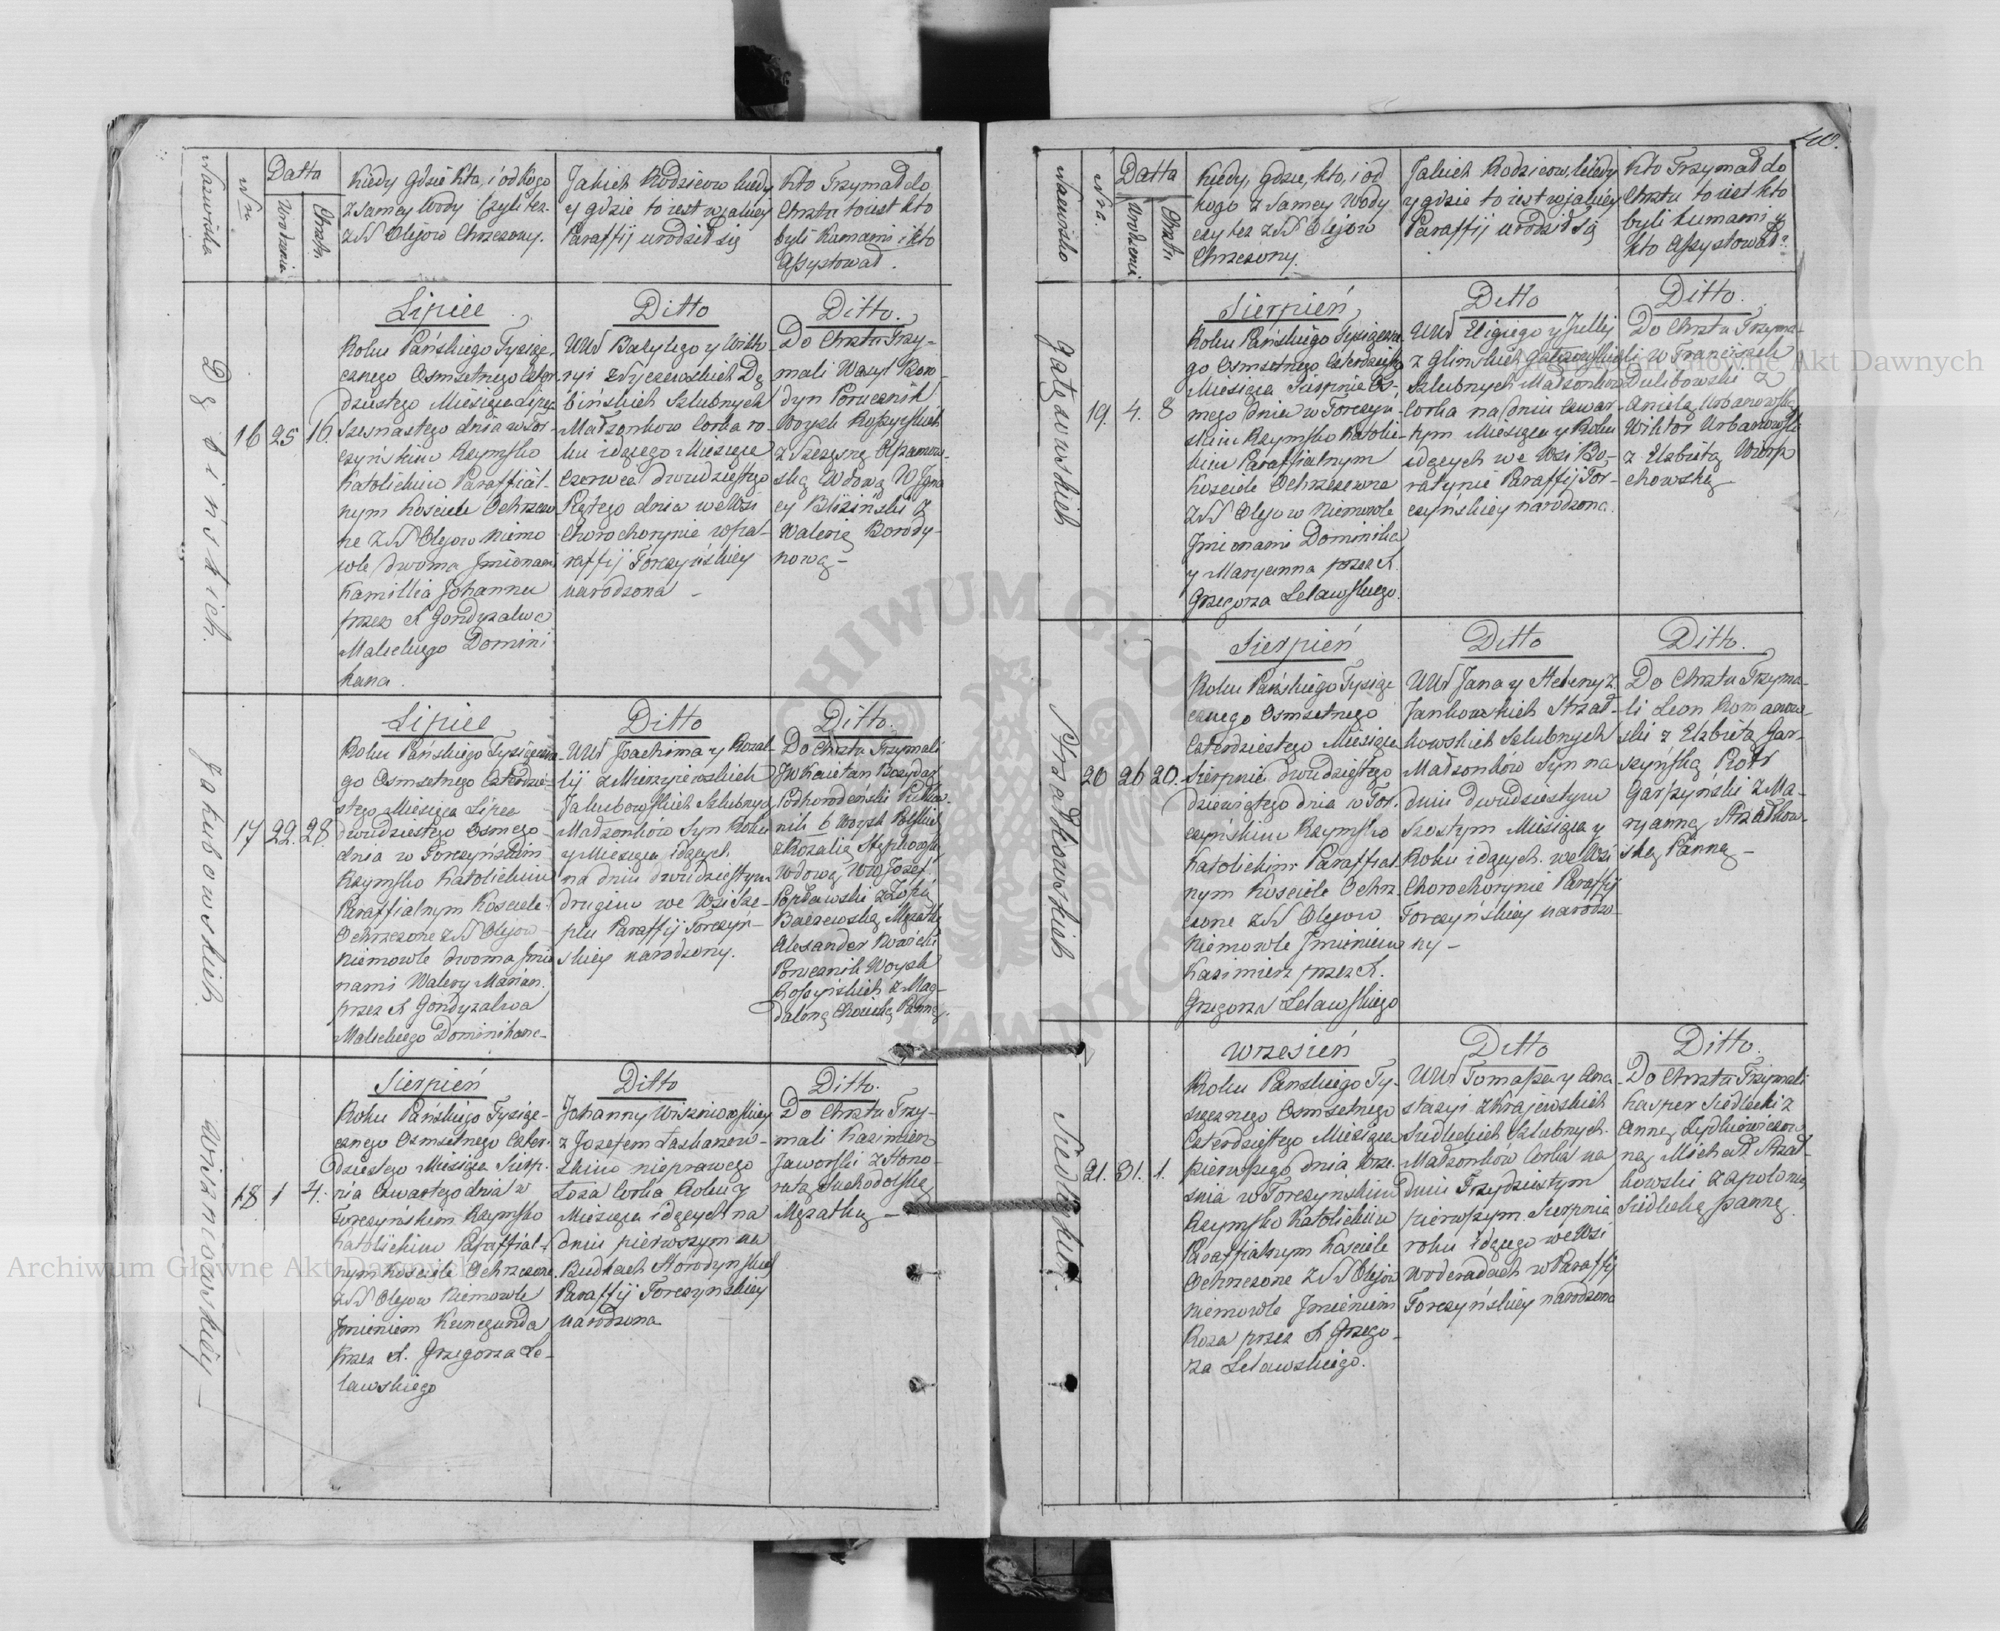 Nazwiska
Nr.
Datta
Urodzenia
Chrztu
Kiedy Gdzie Kto, i od kogo
z samey Wody czyli tez
z SS Olejow Chrzczony.
Jakich Rodzicow kiedy
y gdzie to iest w jakiey
Paraffij urodził się
Kto Trzymał do
Chrztu to iest kto
byli Kumami i kto
Assystował.
Dębinskich.
16
25
16.
Lipiec
Roku Pańskiego Tysiącz-
cznego Osmsetnego Czter-
dziestego Miesiąca Lipca
Szesnastego dnia w Tor-
czyńskim Rzymsko
Katolickim Paraffial-
nym Kosciele Ochrzczo
ne z SS Olejow niemo
wle dwoma Jmionami
Kamillia Johanna
przez X Gondyzalwa
Malickiego Domini
kana.
Ditto
UUr Bazylego y Wikto
ryi
binskich Szlubnych
Małzonkow Corka ro-
ku idącego Miesiąca
Czerwca dwudziestego
Piątego dnia we Wsi
Chorochorynie w Pa-
raffij Torczyńskiey
narodzona -
Ditto.
Do Chrztu Trzy-
mali Wasyl Boro-
dyn Porucznik
Woysk Rossyiskich
z
Wdową W Jgna
cy Blizinski z
Walerią Borody-
nową -
Jakubowskich
17
22.
28.
Lipiec
Roku Pańskiego Tysiączne-
go Osmsetnego Czterdzie-
stego Miesiąca Lipca
dwudziestego Osmego
dnia w Torczyńskim
Rzymsko Katolickim
Paraffialnym Kosciele
Ochrzczone z SS Olejow
Niemowle dwoma Jmio
nami Walery Marian.
przez X Gondyzalwa
Malickiego Dominikana-
Ditto
UUr Joachima y Rozal-
lij z Mierzwinskich
Jakubowskich Szlubnych
Małzonków Syn Roku
y Miesiąca idących
na dniu dwudziestym
drugim we Wsi
Paraffij Torczyń-
skiey narodzony.
Ditto.
Do Chrztu Trzymali
JW Kaietan Bozydar
Podhorodeński Pułkow-
nik b Woysk Polskich
z Rozalią
Wdową, WW Jozef
z Zofią
Mężatką
Alexander
Porucznik Woysk
Rossyiskich z Mag-
daleną Panną.
Wiszniowskiey -
18.
1
4.
Sierpień
Roku Pańskiego Tysiącz-
cznego Osmsetnego Czter-
dziestego Miesiąca Sierp-
nia Czwartego dnia w
Torczyńskim Rzymsko
Katolickim Paraffial-
nym Kosciele Ochrzczone
z SS Olejow Niemowle
Jmieniem Kunegunda
Przez X. Grzegorza Le-
ławskiego
Ditto
Johanny Wiszniowskiey
z Jozefem
skim nieprawego
Łoza Corka Roku y
Miesiąca idących na
dniu pierwszym na
Budkach Horodynskich
Paraffij Torczyńskiey
narodzona
Ditto.
Do Chrztu Trzy-
mali Kazimierz
Jaworski z Hono-
ratą Suchodolską
Mężatką -
Nazwiska
Nra.
Datta
Urodzenia
Chrztu
Kiedy, gdzie, kto, i od
kogo z Samey Wody
czy tez z SS Olejów
Chrzczony.
Jakich Rodzicow, kiedy
y gdzie to iest w jakiey
Paraffij urodził się
Kto Trzymał do
Chrztu to iest kto
byli Kumami y
kto Assystował?
Gałęzowskich
19.
4.
8
Sierpień
Roku Pańskiego Tysiączne
go Osmsetnego Czterdziestego
Miesiąca Sierpnia Os-
mego dnia w Torczyń-
skim Rzymsko Katolic-
kim Paraffialnym
Kosciele Ochrzczone
z SS Olejow Niemowle
Jmionami Dominika
y Maryanna przez X.
Grzegorza Leławskiego.
Ditto
UUr Eligiego y Julii
z Glinskich Gałęzowskich
Szlubnych Małzonkow
Corka na dniu Czwar-
tym Miesiąca y Roku
idących we Wsi Bo-
ratynie Paraffij Tor-
czyńskiey narodzona.
Ditto.
Do Chrztu Trzyma-
li W Franciszek
Dulibowski z
Anielą Urbanowską
Wiktor Urbanowski
z Elzbietą
chowską
Strzałkowskich
20
26
20.
Sierpień
Roku Pańskiego Tysiącz
cznego Osmsetnego
Czterdziestego Miesiąca
Sierpnia dwudziestego
dziewiątego dnia w Tor-
czyńskim Rzymsko
Katolickim Paraffial-
nym Kosciele Ochrz-
czone z SS Olejow
Niemowle Jmieniem
Kazimierz przez X.
Grzegorza Leławskiego
Ditto
UUr Jana y Heleny z
Jankowskich Strzał-
kowskich Szlubnych
Małzonków Syn na
dniu dwudziestym
Szostym Miesiąca y
Roku idących we Wsi
Chorochorynie Paraffij
Torczyńskiey narodzo-
ny -
Ditto.
Do Chrztu Trzyma-
li Leon Romanow
ski z Elzbietą Gar-
szyńską Piotr
Garszyński z Ma-
ryanną Strzałkow-
ską Panną -
Siedleckich.
21.
31.
1.
Wrzesień
Roku Panskiego Ty-
siącznego Osmsetnego
Czterdziestego Miesiąca
pierwszego dnia Wrze-
snia w Torczynskim
Rzymsko Katolickim
Paraffialnym Kosciele
Ochrzczone z SS Olejow
Niemowle Jmieniem
Roza przez X Grzego-
rza Leławskiego.
Ditto
UUr Tomasza y Ana
stazyi z Krajewskich
Siedleckich Szlubnych
Małzonków Corka na
dniu Trzydziestym
pierwszym Sierpnia
roku idącego we Wsi
Woderadach w Paraffij
Torczyńskiey narodzona
Ditto.
Do Chrztu Trzymali
Kasper Siedlecki z
Anną
ną Michał Strzał-
kowski z Apolonią
Siedlecką panną.
Archiwum Główne Akt Dawnych
Archiwum Główne Akt Dawnych
ARCHIWUM GŁÓWNE AKT DAWNYCH